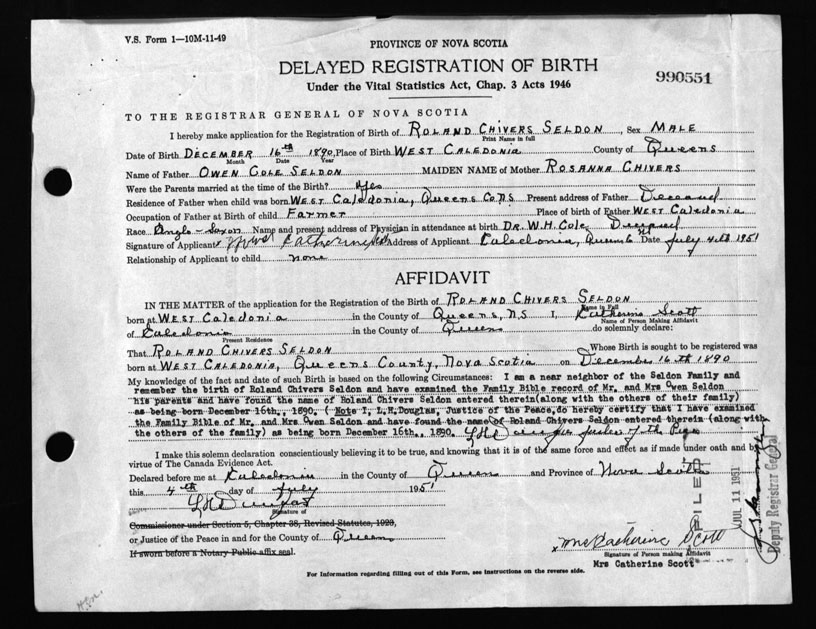 V.S. Form 1—10M-11-49
PROVINCE OF NOVA SCOTIA
DELAYED REGISTRATION OF BIRTH
990551
Under the Vital Statistics Act, Chap. 3 Acts 1946
TO THE REGISTRAR GENERAL OF NOVA SCOTIA
I hereby make application for the Registration of Birth of ROLAND CHIVERS SELDON, Sex MALE
Print Name in full
Date of Birth DECEMBER 16th 1890, Place of Birth WEST CALEDONIA County of Queens
Month Date Year
Name of Father OWEN COLE SELDON MAIDEN NAME of Mother ROSANNA CHIVERS
Were the Parents married at the time of the Birth? Yes
Residence of Father when child was born WEST CALEDONIA, QUEENS CO N.S Present address of Father Deceased
Occupation of Father at Birth of child FARMER Place of birth of Father WEST CALEDONIA
Race Anglo-Saxon Name and present address of Physician in attendance at birth DR. W.H. Cole, Deceased
Signature of Applicant Address of Applicant Caledonia, Queens Date July 4th 1951
Relationship of Applicant to child none
AFFIDAVIT
IN THE MATTER of the application for the Registration of the Birth of ROLAND CHIVERS SELDON
Name in Full
born at WEST CALEDONIA in the County of Queens, N.S I, Katherine Scott
Name of Person Making Affidavit
of Caledonia in the County of Queens do solemnly declare:
Present Residence
That ROLAND CHIVERS SELDON Whose Birth is sought to be registered was
born at WEST CALEDONIA, QUEENS COUNTY, NOVA SCOTIA on December 16th 1890
My knowledge of the fact and date of such Birth is based on the following Circumstances: I am a near neighbor of the Seldon Family and
remember the birth of Roland Chivers Seldon and have examined the Family Bible record of Mr. and Mrs Owen Seldon
his parents and have found the name of Roland Chivers Seldon entered therein(along with the others of their family)
as being born December 16th., 1890. ( Note I, L.H.Douglas, Justice of the Peace,do hereby certify that I have examined
the Family Bible of Mr. and Mrs Owen Seldon and have found the name of Roland Chivers Seldon entered therein (along with
the others of the family) as being born December 16th., 1890. LH Douglas Justice of the Peace
I make this solemn declaration conscientiously believing it to be true, and knowing that it is of the same force and effect as if made under oath and by
virtue of The Canada Evidence Act.
Declared before me at Caledonia in the County of Queens and Province of Nova Scotia
this 4th day of July 1951
LH Douglas
Signature of
Commissioner under Section 5, Chapter 38, Revised Statutes, 1923,
or Justice of the Peace in and for the County of Queens
If sworn before a Notary Public affix seal.
x Mrs Catherine Scott
Signature of Person making Affidavit
Mrs Catherine Scott
FILED
JUL 11 1951
Deputy Registrar General
For Information regarding filling out of this Form, see instructions on the reverse side.